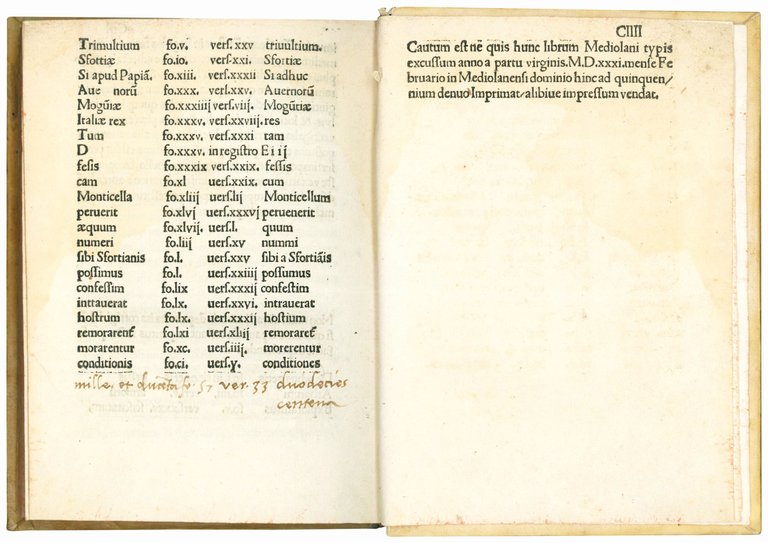 Trimultium fo.v. vers.xxv triuultium.
Sfottiæ fo.io. vers.xxi. Sfortiæ
Si apud Papiã. fo.xiii. vers.xxxii Si adhuc
Aue norũ fo.xxx. vers.xxv. Auernorũ
Mogũiæ fo.xxxiiij vers.viij. Mogũtiæ
Italiæ rex fo.xxxv. vers.xxviij. res
Tum fo.xxxv. vers.xxxi tam
D fo.xxxv. in registro E i i j
fesis fo.xxxix vers.xxix. fessis
cam fo.xl uers.xxix. cum
Monticella fo.xliij uers.lij Monticellum
peruerit fo.xlvj uers.xxxvj peruenerit
æquum fo.xlvij. uers.l. quum
numeri fo.liij uers.xv nummi
sibi Sfortianis fo.l. uers.xxv sibi a Sfortiãis
possimus fo.l. uers.xxiiij possumus
confessim fo.lix uers.xxxij confestim
intrauerat fo.lx. uers.xxvi. intrauerat
hostrum fo.lx. uers.xxxij hostium
remorarent fo.lxi uers.xliij remoraret
morarentur fo.xc. uers.iiij. morerentur
conditionis fo.ci. uers.v. conditiones
mille, et ducẽta fo 57 ver. 33 duodecies
centena
CIIII
Cautum est nẽ quis hunc librum Mediolani typis
excussum anno a partu virginis.M.D.xxxi.mense Fe
bruario in Mediolanensi dominio hinc ad quinquen/
nium denuo Imprimat, alibiue impressum vendat.